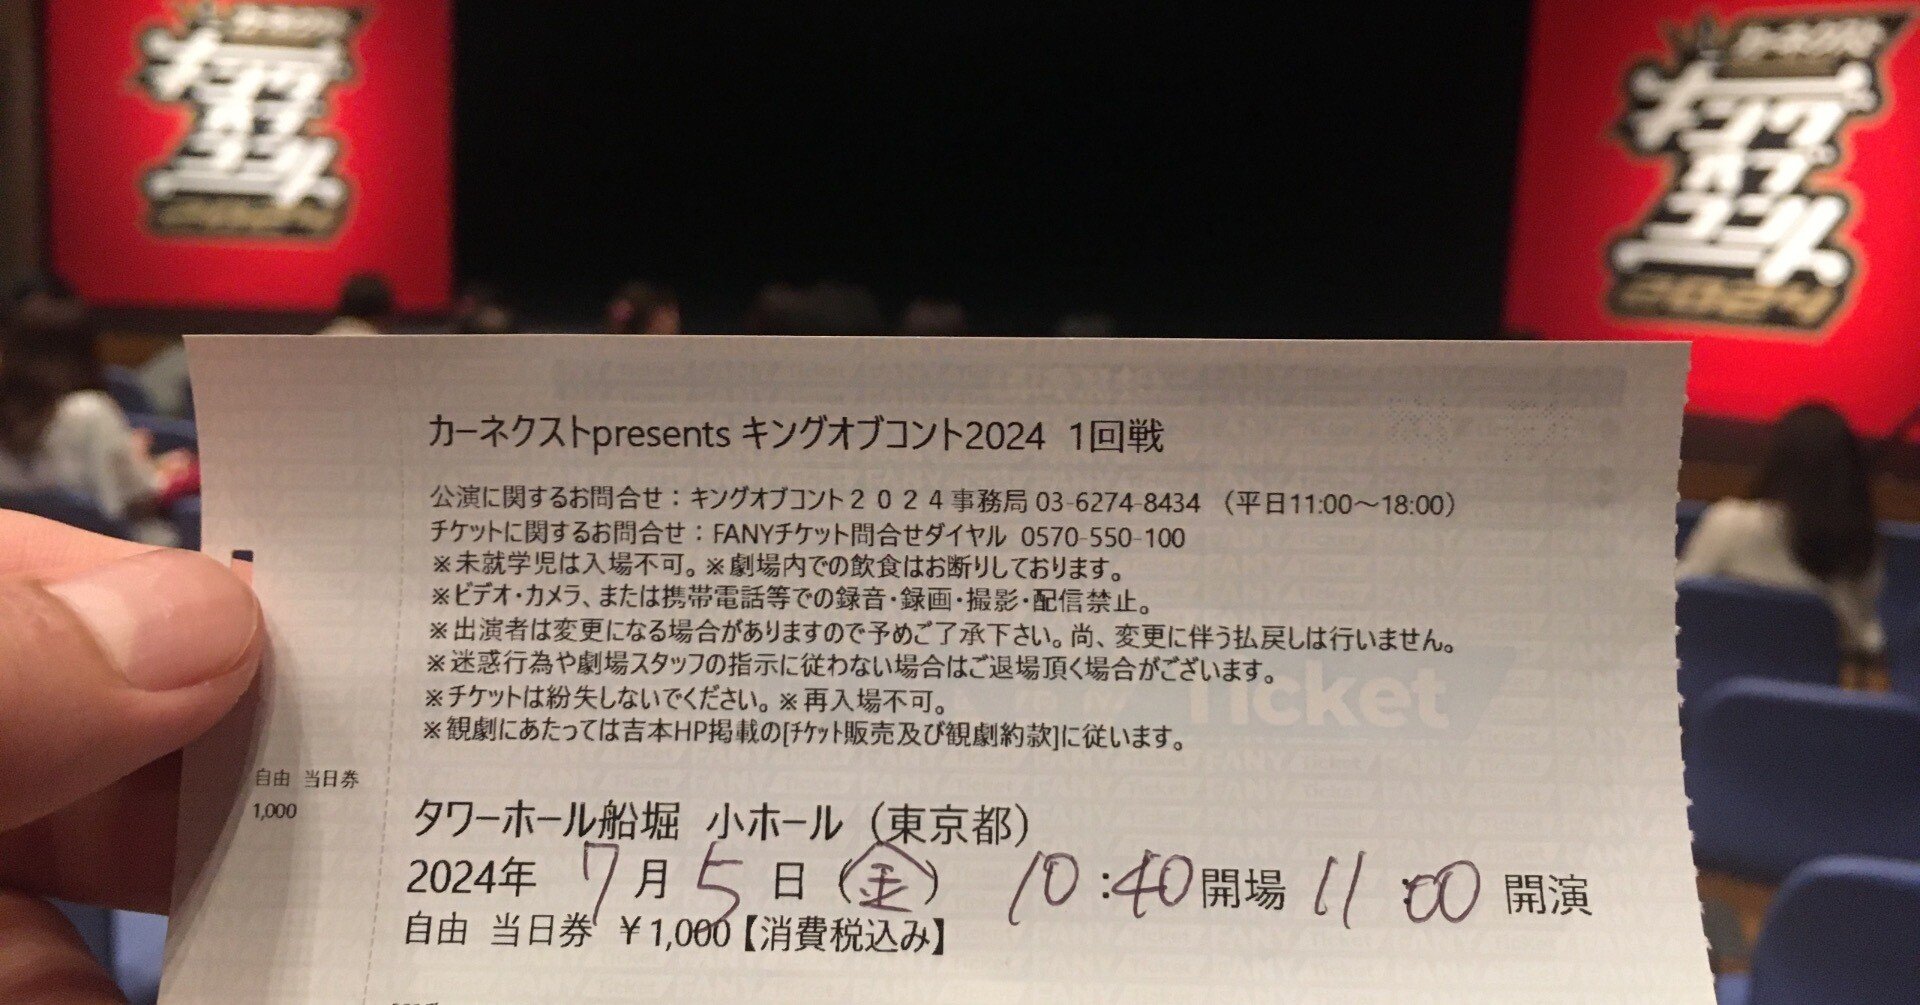 カーネクスト
キング
オブ
コント
2024
カーネクスト
キング
オブ
コント
2024
カーネクストpresents キングオブコント2024 1回戦
公演に関するお問合せ：キングオブコント２０２４事務局 03-6274-8434 （平日11:00～18:00）
チケットに関するお問合せ：FANYチケット問合せダイヤル 0570-550-100
※未就学児は入場不可。※劇場内での飲食はお断りしております。
※ビデオ・カメラ、または携帯電話等での録音・録画・撮影・配信禁止。
※出演者は変更になる場合がありますので予めご了承下さい。尚、変更に伴う払戻しは行いません。
※迷惑行為や劇場スタッフの指示に従わない場合はご退場頂く場合がございます。
※チケットは紛失しないでください。※再入場不可。
※観劇にあたっては吉本HP掲載の[チケット販売及び観劇約款]に従います。
Ticket
自由 当日券
1,000
タワーホール船堀 小ホール（東京都）
2024年 7月 5日（金） 10:40開場 11:00開演
自由 当日券 ￥1,000【消費税込み】